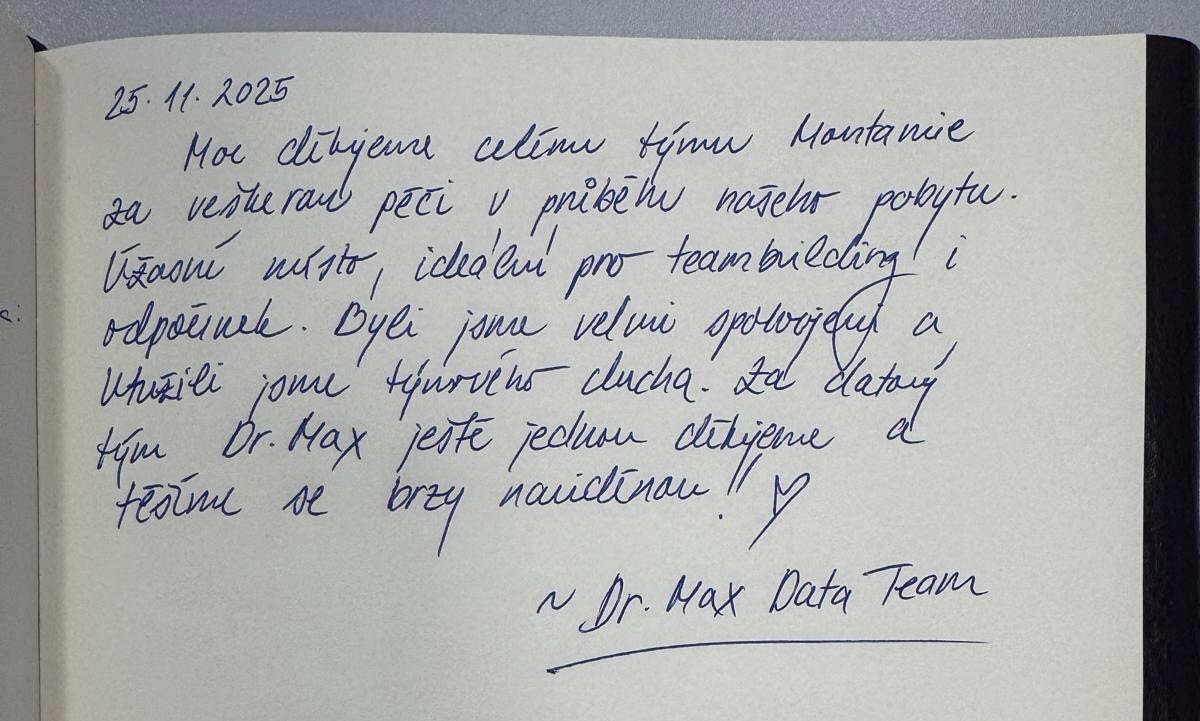 25. 11. 2025
Moc děkujeme celému týmu Montanie
za veškerou péči v průběhu našeho pobytu.
Úžasné místo, ideální pro teambuilding i
odpočinek. Byli jsme velmi spokojeni a
utužili jsme týmového ducha. Za datový
tým Dr. Max ještě jednou děkujeme a
těšíme se brzy naviděnou!! ♡
~ Dr. Max Data Team